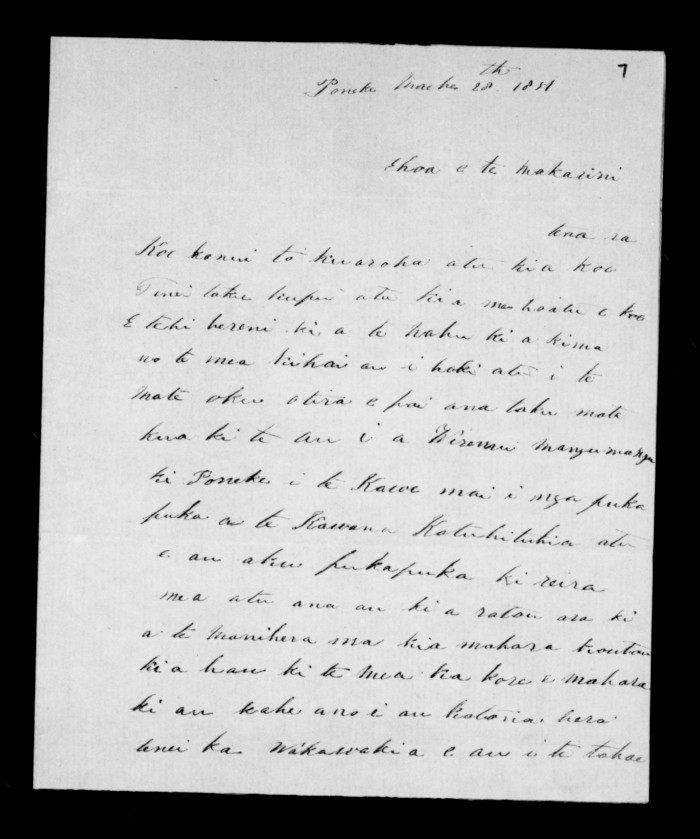 7
Poneke Maehe 28th 1851
Ehoa e te Makarini
tena ra
Koe ko nui to kuaroha atu kia koe
Tenei taku kupu atu kia me hoatu e koe
E tehi hereni ki a te hahu ki a kima
no te mea kihai au i hoki atu i te
mate oku otira e pai ana taku mate
kua ki te au i a Wiremu
ki Poneke i te Kawe mai i nga puka
puka a te Kawana Katuhituhia atu
e au aku pukapuka ki reira
mea atu ana au ki a ratou ara ki
a te Manihera ma kia mahara
kia hau ki te mea kia kore e mahara
ki au kahe ano i au kotona hera
tenei ka Wakawakia e au i te tohae